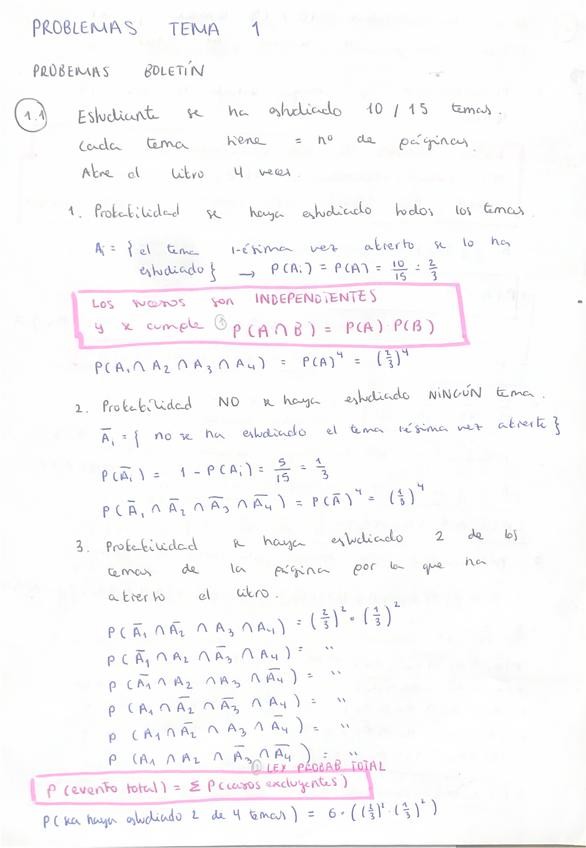 PROBLEMAS TEMA 1
PROBEMAS BOLETÍN
1.1 Estudiante se ha estudiado 10 / 15 temas.
Cada tema tiene = nº de páginas.
Abre el libro 4 veces.
1. Probabilidad se haya estudiado todos los temas.
Ai = { el tema i-ésima vez abierto se lo ha
estudiado } → P(Ai) = P(A) = 10/15 = 2/3
Los sucesos son INDEPENDIENTES
y se cumple P(A∩B) = P(A)·P(B)
P(A1 ∩ A2 ∩ A3 ∩ A4) = P(A)^4 = (2/3)^4
2. Probabilidad NO se haya estudiado NINGÚN tema.
Āi = { no se ha estudiado el tema i-ésima vez abierto }
P(Āi) = 1 - P(Ai) = 5/15 = 1/3
P(Ā1 ∩ Ā2 ∩ Ā3 ∩ Ā4) = P(Ā)^4 = (1/3)^4
3. Probabilidad se haya estudiado 2 de los
temas de la página por la que ha
abierto el libro.
P(Ā1 ∩ Ā2 ∩ A3 ∩ A4) = (2/3)^2 · (1/3)^2
P(Ā1 ∩ A2 ∩ Ā3 ∩ A4) = "
P(Ā1 ∩ A2 ∩ A3 ∩ Ā4) = "
P(A1 ∩ Ā2 ∩ Ā3 ∩ A4) = "
P(A1 ∩ Ā2 ∩ A3 ∩ Ā4) = "
P(A1 ∩ A2 ∩ Ā3 ∩ Ā4) = "
LEY PROBAB. TOTAL
P(evento total) = Σ P(casos excluyentes)
haya estudiado 2 de 4 temas) = 6 · ((2/3)^2 · (1/3)^2)